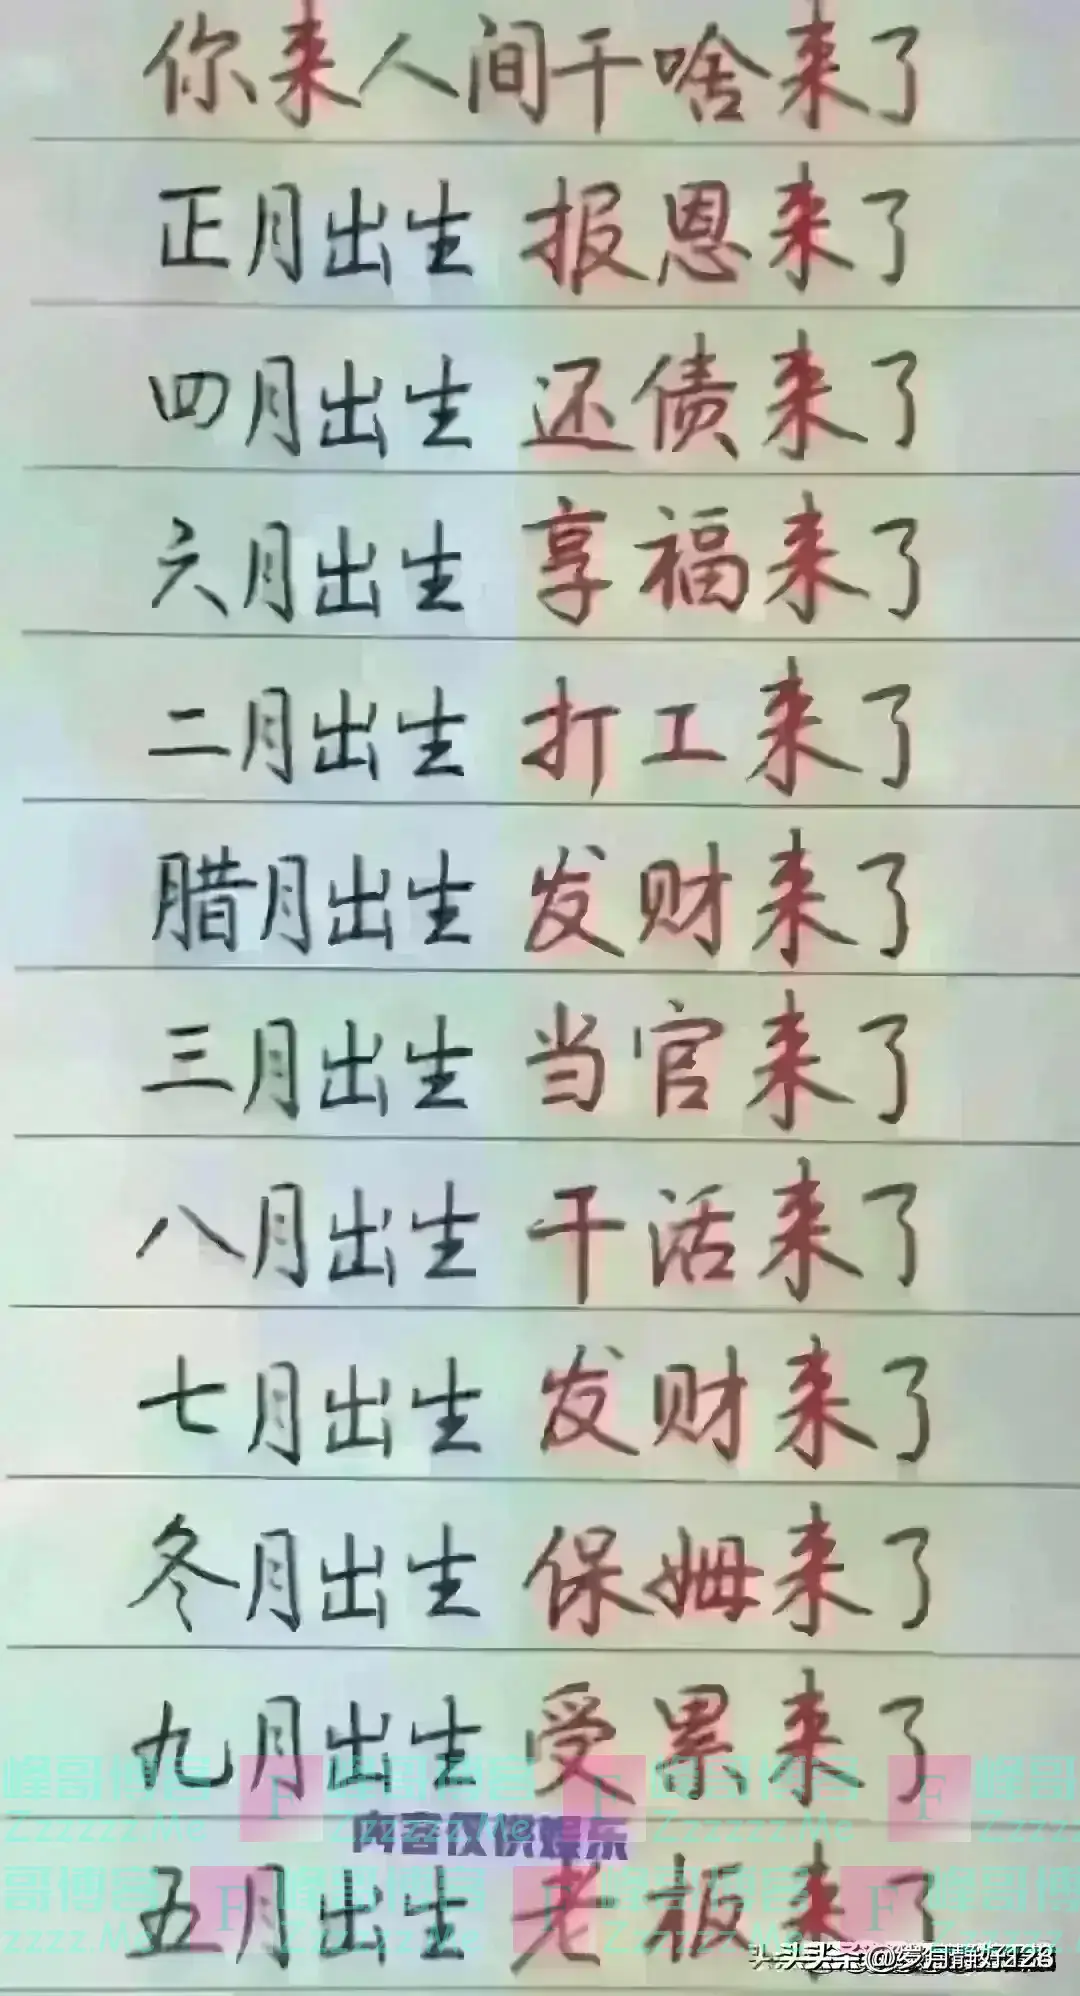 你来人间干啥来了
正月出生 报恩来了
四月出生 还债来了
六月出生 享福来了
二月出生 打工来了
腊月出生 发财来了
三月出生 当官来了
八月出生 干活来了
七月出生 发财来了
冬月出生 保姆来了
九月出生 受累来了
峰哥博客 F 峰哥博客 F 峰哥博客 F 峰哥博
Zzzzzz.Me Zzzzzz.Me Zzzzzz.Me Zzzzzz
内容仅供娱乐
五月出生 老板来了
哥博客 F 峰哥博客 F 峰哥博客 F 峰哥博
zzzz.Me Zzzzzz.Me Zzzzzz.Me
头条 @岁月静好